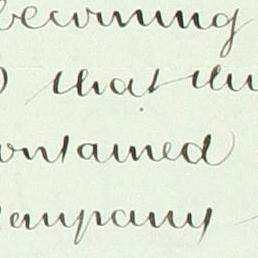 becoming
that
ontained
Company